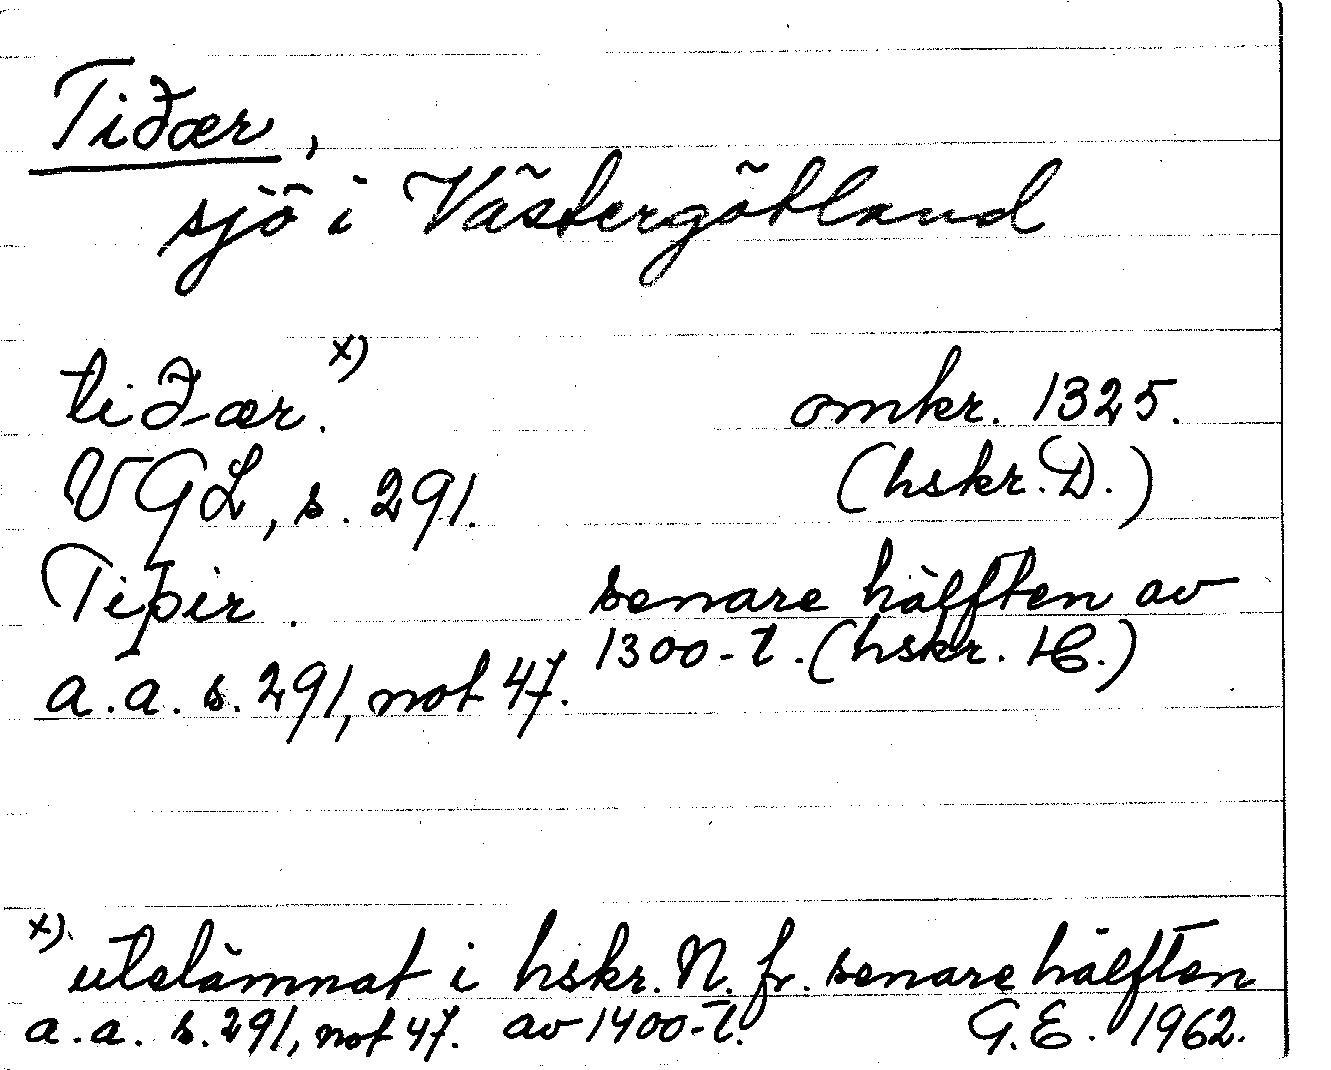 Tiðær,
sjö i Västergötland
tiðær.x) omkr. 1325.
VGL, s. 291. (hskr. D.)
Tiþir. senare hälften av
1300-t. (hskr. H.)
a.a. s. 291, not 47.
x) utelämnat i hskr. N. fr. senare hälften
a.a. s. 291, not 47. av 1400-t. G.E. 1962.